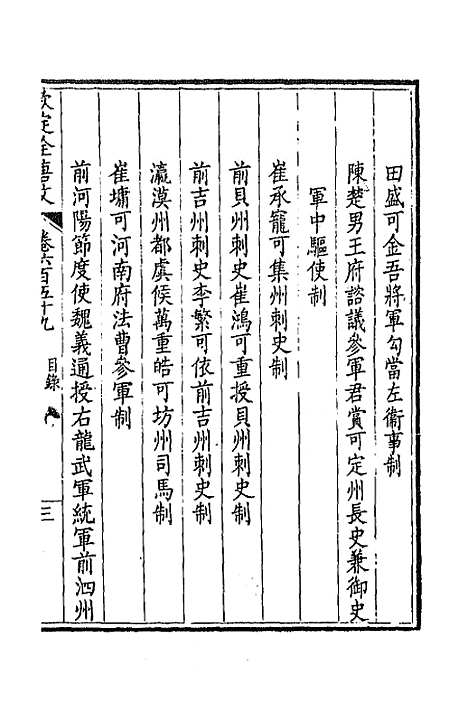 田盛可金吾將軍勾當左衞事制
陳楚男王府諮議參軍君賞可定州長史兼御史
軍中驅使制
崔承寵可集州刺史制
前貝州刺史崔鴻可重授貝州刺史制
前吉州刺史李繁可依前吉州刺史制
瀛漠州都虞候萬重皓可坊州司馬制
崔墉可河南府法曹參軍制
前河陽節度使魏義通授右龍武軍統軍前泗州
欽定全唐文
卷六百五十九
目錄
三